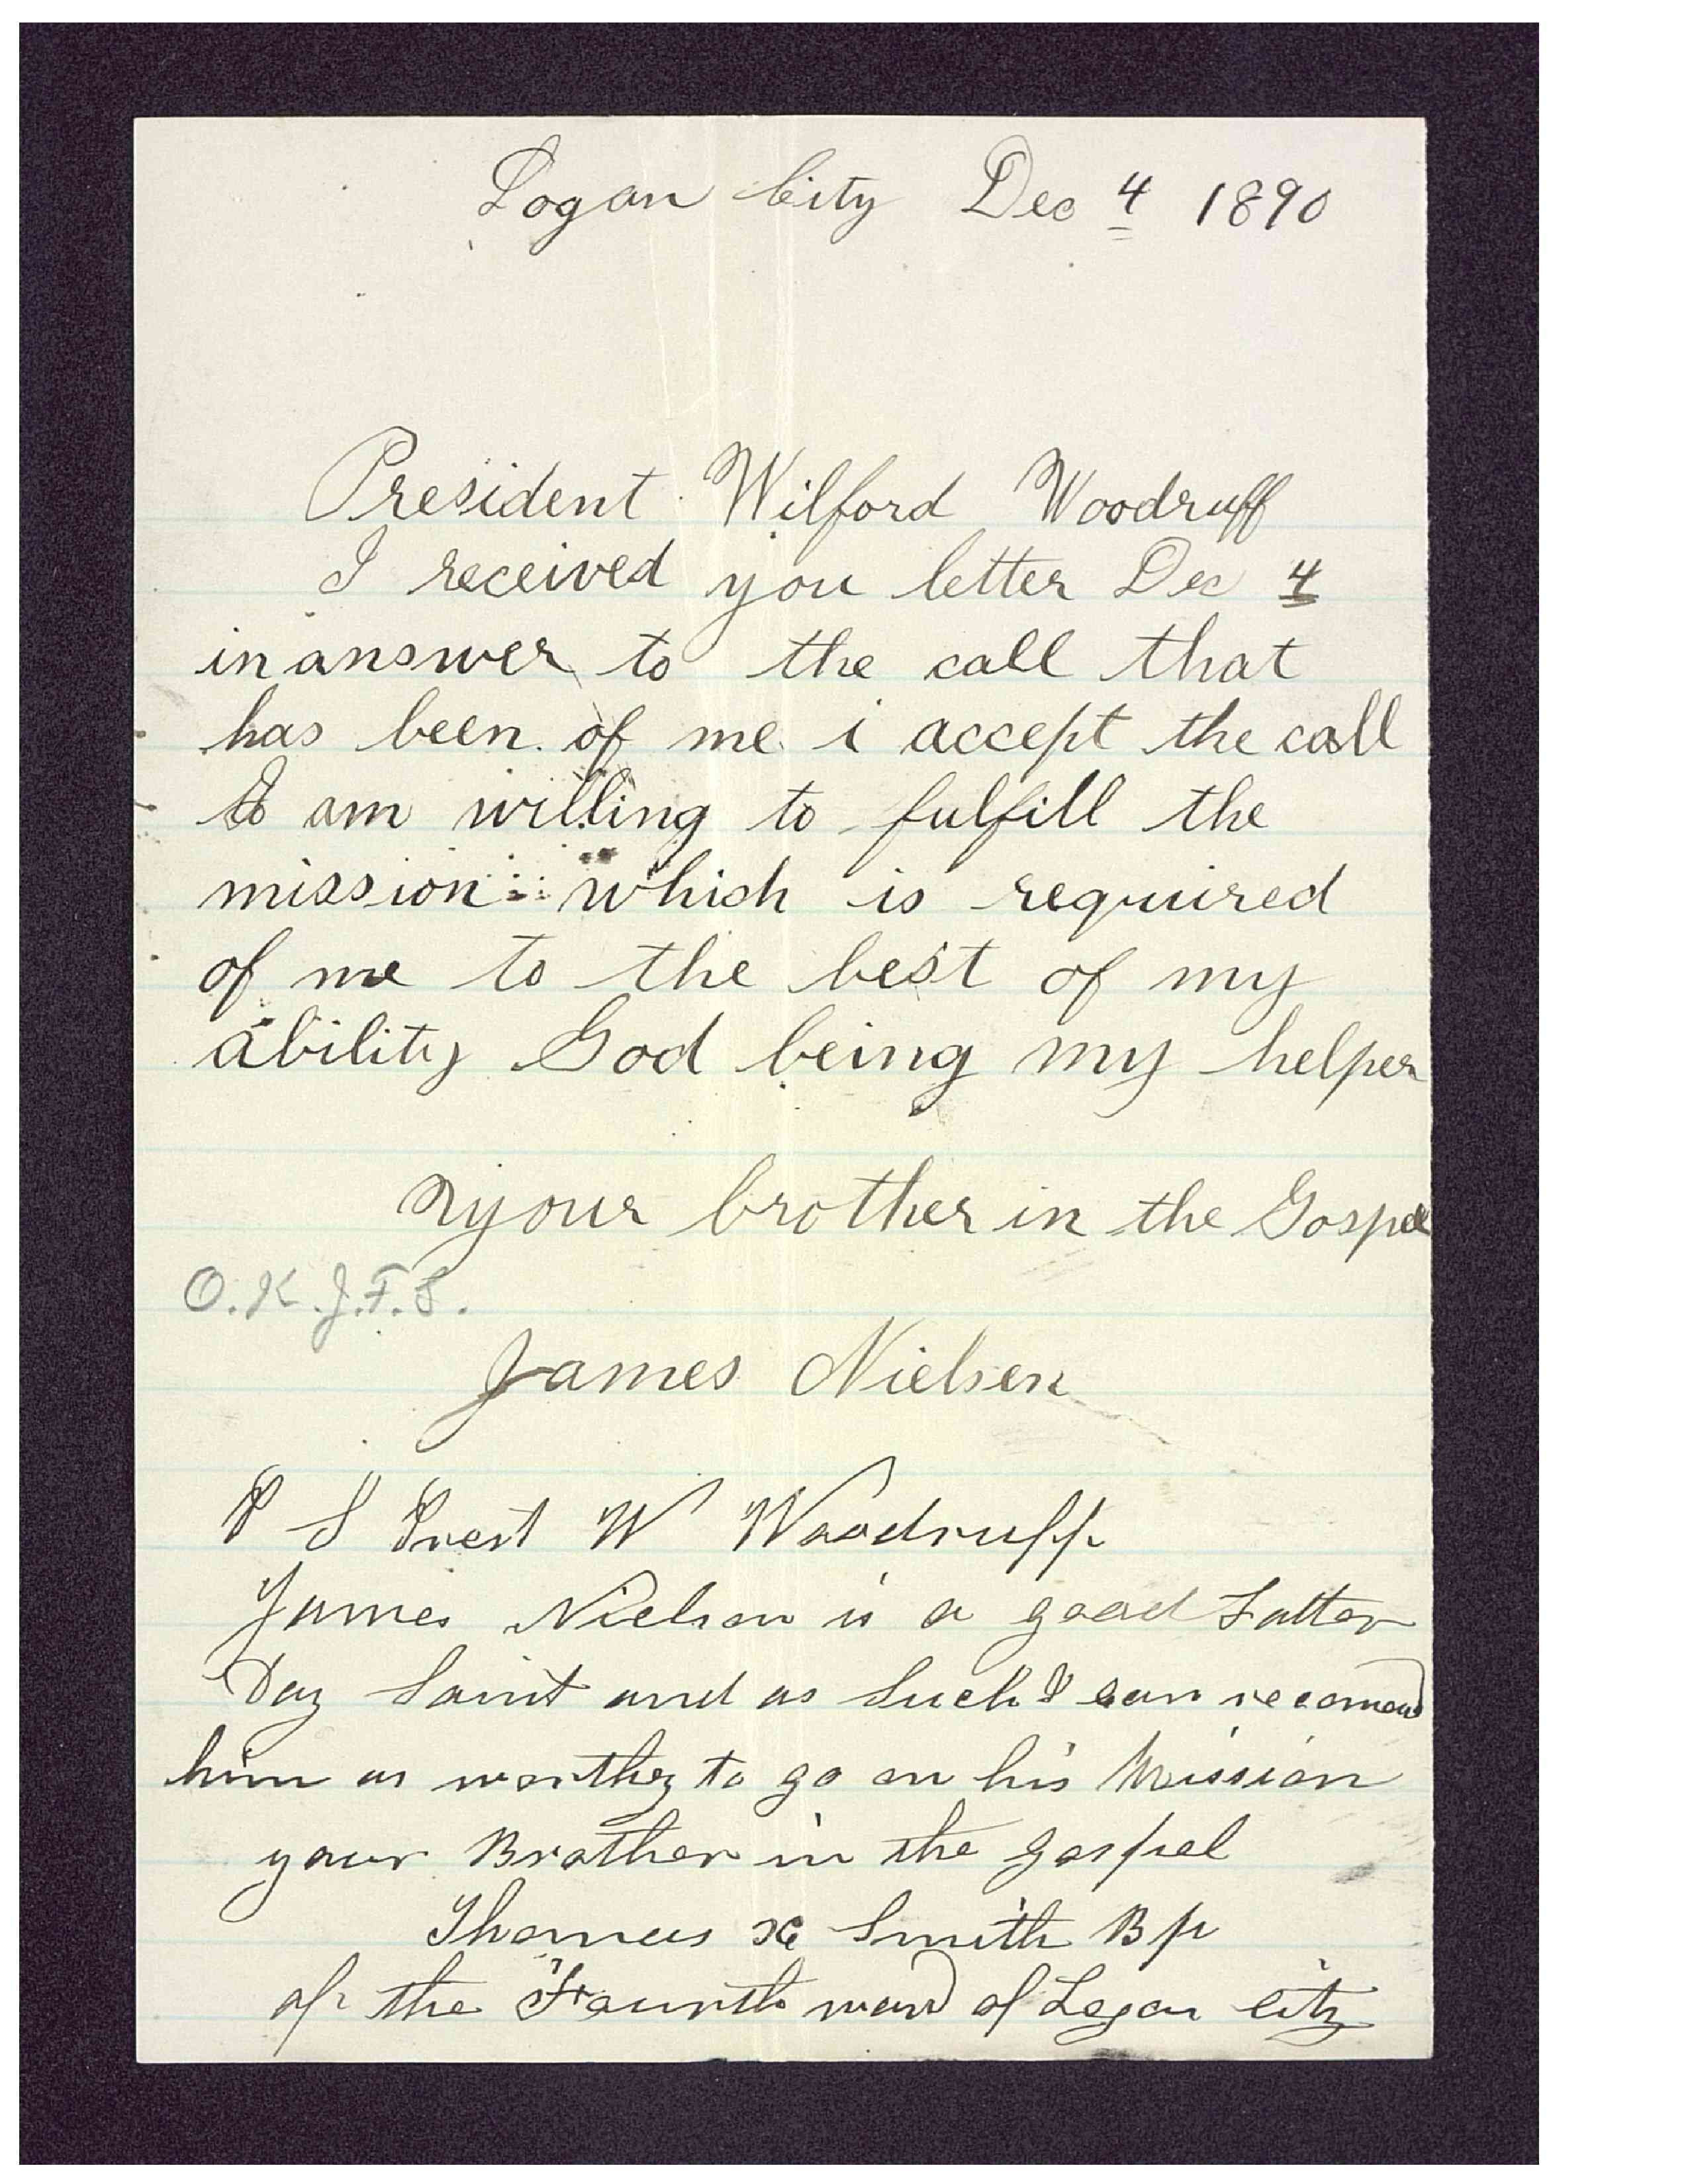 Logan City Dec 4 1890
President Wilford Woodruff
I received you letter Dec 4
in answer to the call that
has been of me i accept the call
I am willing to fulfill the
mission which is required
of me to the best of my
ability God being my helper
your brother in the Gospel
O.K. J.F.S.
James Nielsen
P S Prest W Woodruff
James Nielson is a good Latter
Day Saint and as Such I can recomend
him as worthy to go on his Mission
your Brother in the gospel
Thomas X Smith Bp
of the Fourth ward of Logan City